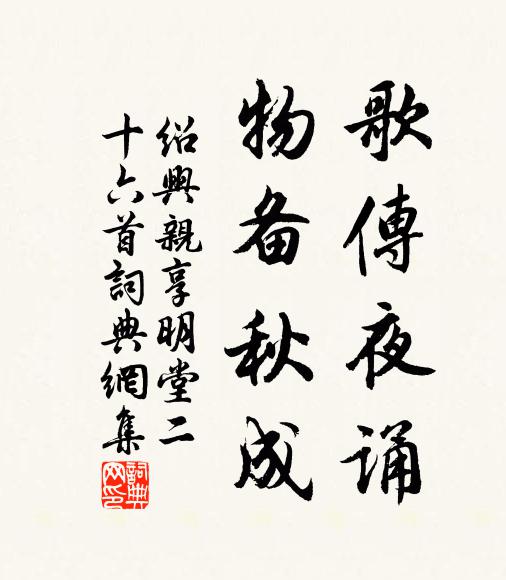 歌傳夜诵
物备秋成
绍興親享明堂二
十六首詞典網集
詞典
网印